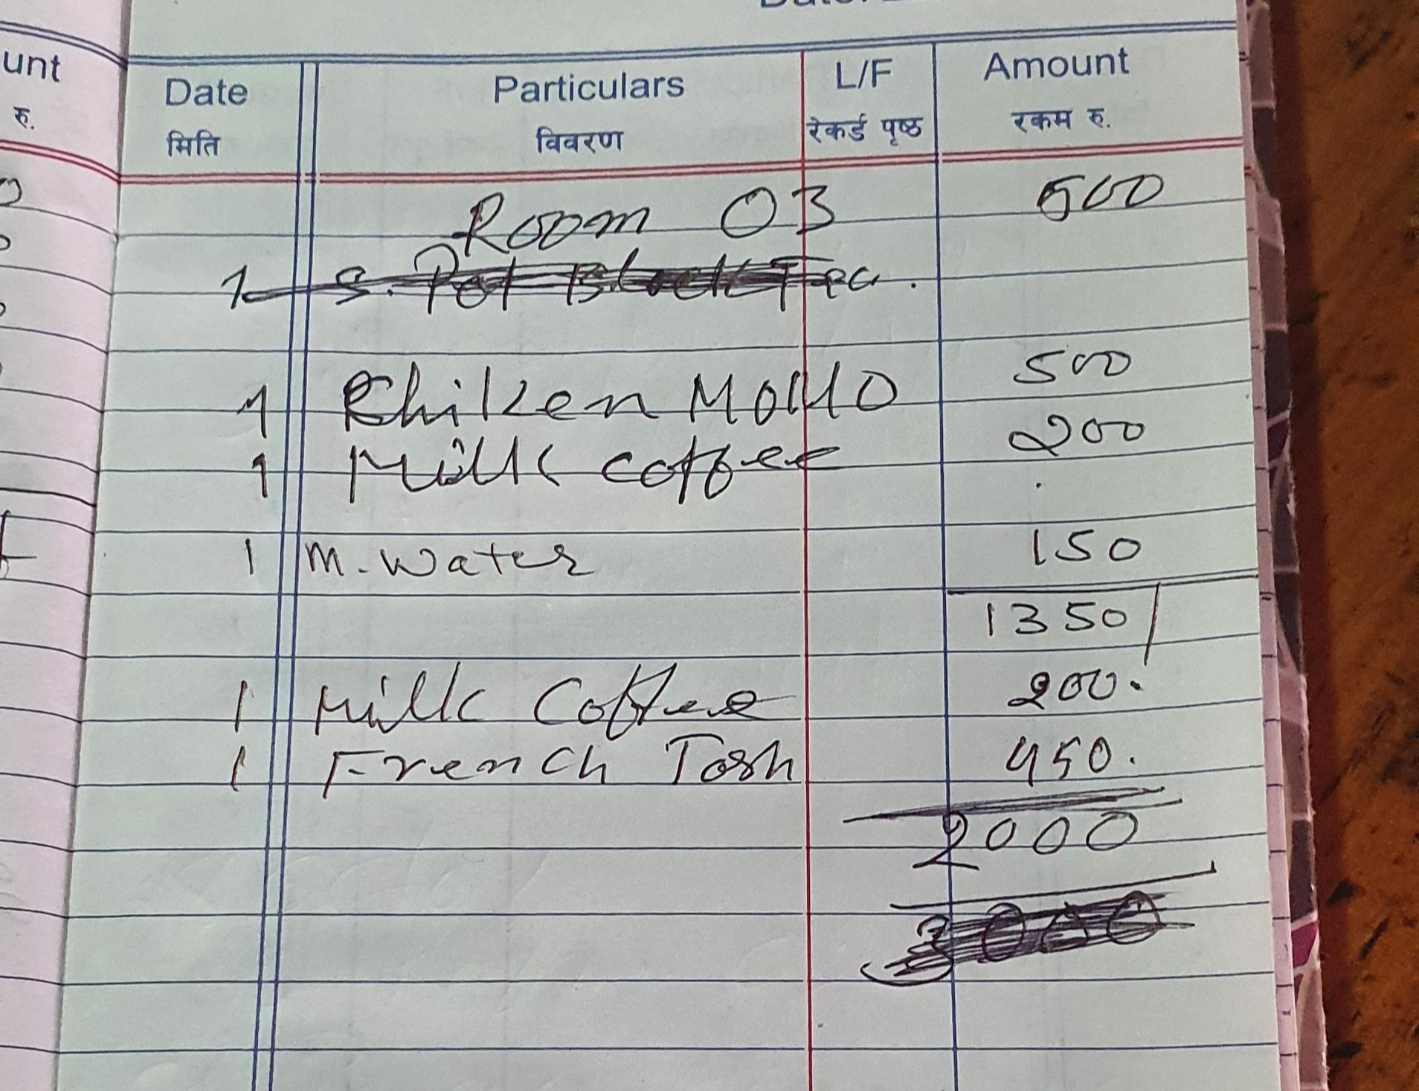 unt
रु.
Date Particulars L/F Amount
मिति विवरण रेकर्ड पृष्ठ रकम रु.
Room 03 500
1 S. Pot Black Tea.
1 Chiken MoMO 500
1 Milk coffee 200
1 M. Water 150
1350/
1 Milk Coffee 200.
1 French Tosh 450.
2000
3000